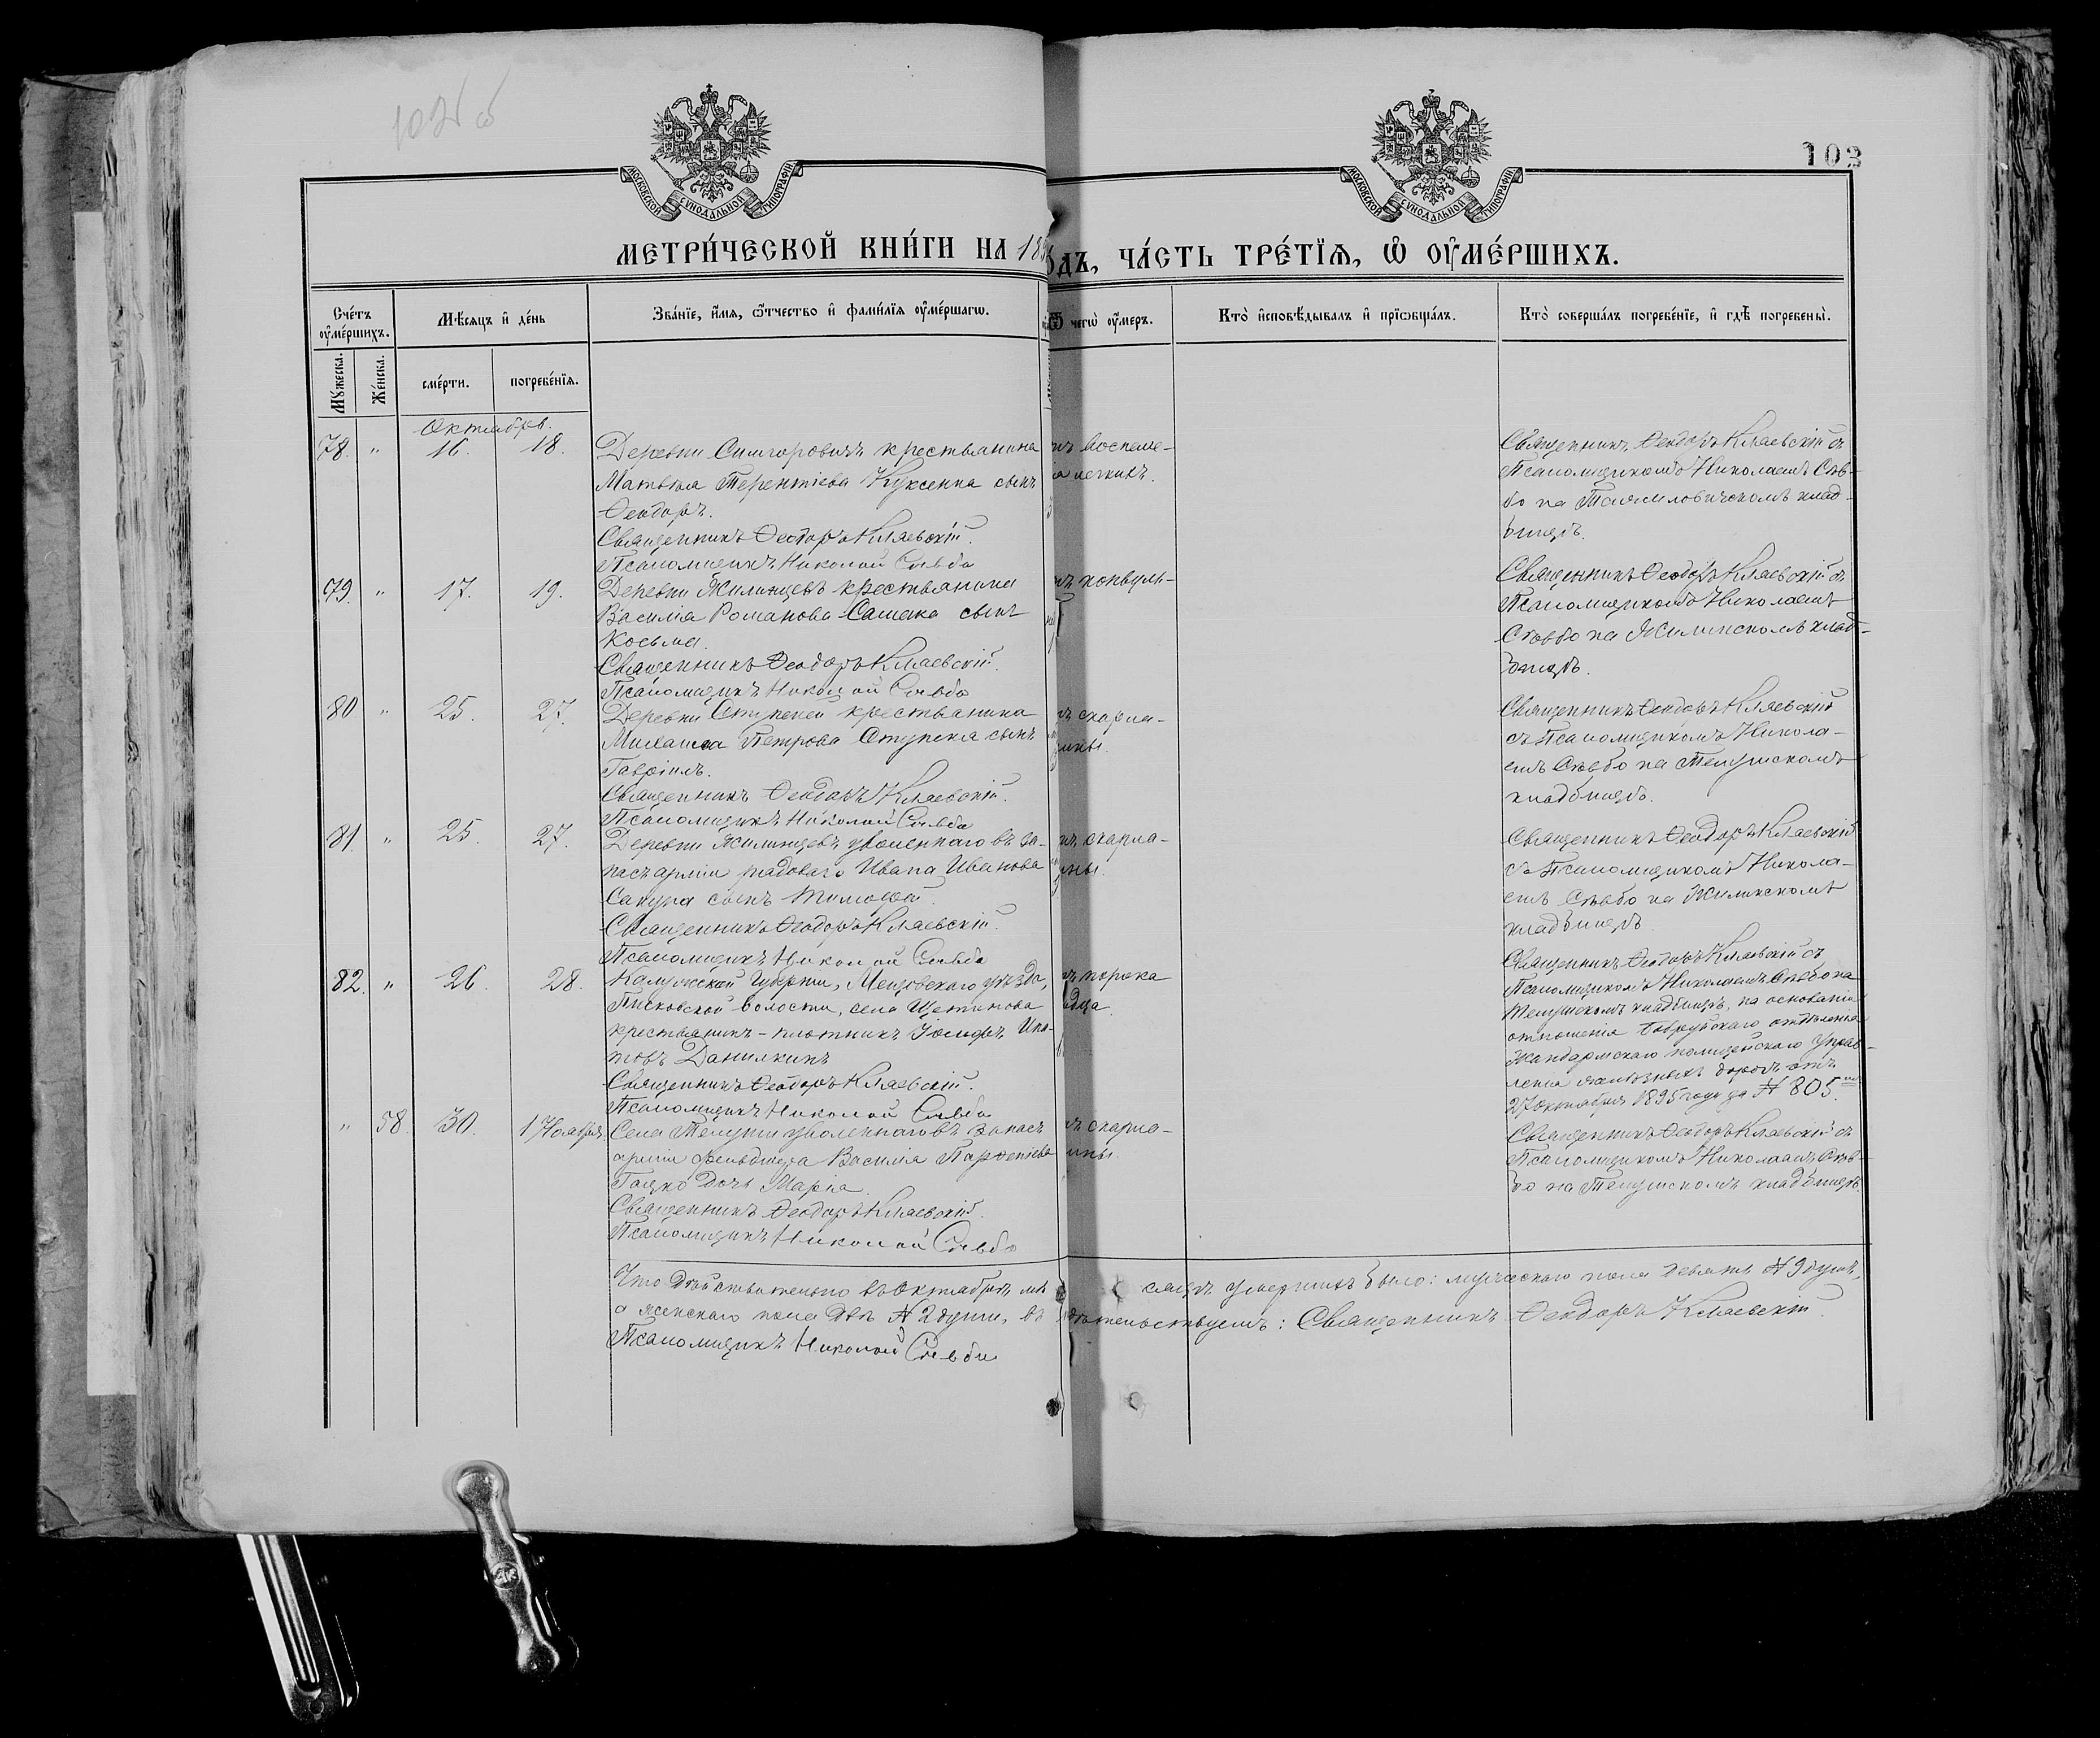 102 об
103
МОСКОВСКОЙ СУНОДАЛЬНОЙ ТИПОГРАФІИ
МОСКОВСКОЙ СУНОДАЛЬНОЙ ТИПОГРАФІИ
МЕТРИ́ЧЕСКОЙ КНИ́ГИ НА 189
ОДЪ, ЧА́СТЬ ТРЕ́ТЇѦ, Ѡ҆ ОУ҆МЕ́РШИХЪ.
Сче́тъ оу҆ме́ршихъ.
Мѣ́сяцъ и҆ де́нь
Зва́нїе, и҆́мѧ, ѻ҆́тчество и҆ фами́лїѧ оу҆ме́ршагѡ.
Ѿ чегѡ̀ оу҆́меръ.
Кто̀ и҆сповѣ́дывалъ и҆ прїѡбща́лъ.
Кто̀ соверша́лъ погребе́нїе, и҆ гдѣ̀ погребены̀.
Мꙋ́жеска.
Же́нска.
сме́рти.
погребе́нїѧ.
Октябрь.
78. " 16. 18.
Деревни Сычгоровичъ крестьянина
Матвѣя Терентіева Куксенка сынъ
Ѳеодоръ.
Священникъ Ѳеодоръ Кляевскій.
Псаломщикъ Николай Сѣвбо
воспале-
легкихъ.
Священникъ Ѳеодоръ Кляевскій съ
Псаломщикомъ Николаемъ Сѣв-
бо на кладбищѣ.
79. " 17. 19.
Деревни Жилинцевъ крестьянина
Василія Романова Сашека сынъ
Косьма.
Священникъ Ѳеодоръ Кляевскій.
Псаломщикъ Николай Сѣвбо
конвуль-
Священникъ Ѳеодоръ Кляевскій съ
Псаломщикомъ Николаемъ
Сѣвбо на Жилинскомъ клад-
бищѣ.
80 " 25. 27.
Деревни Ступеней крестьянина
Михаила Петрова Ступеня сынъ
Гавріилъ.
Священникъ Ѳеодоръ Кляевскій.
Псаломщикъ Николай Сѣвбо
скарла-
тины.
Священникъ Ѳеодоръ Кляевскій
съ Псаломщикомъ Никола-
емъ Сѣвбо на Телушскомъ
кладбищѣ.
81. " 25. 27.
Деревни Жилинцевъ уволеннаго въ за-
пасъ арміи рядоваго Ивана Иванова
Сапуна сынъ Тимоѳей.
Священникъ Ѳеодоръ Кляевскій.
Псаломщикъ Николай Сѣвбо
скарла-
тины.
Священникъ Ѳеодоръ Кляевскій
съ Псаломщикомъ Никола-
емъ Сѣвбо на Жилинскомъ
кладбищѣ
82. " 26. 28.
Калужской Губерніи, Мещовскаго уѣзда,
Писковской волости, села Щетинова
крестьянинъ-плотникъ Іосифъ Ипа-
товъ Данилкинъ
Священникъ Ѳеодоръ Кляевскій.
Псаломщикъ Николай Сѣвбо
порока
рдца.
Священникъ Ѳеодоръ Кляевскій съ
Псаломщикомъ Николаемъ Сѣвбо на
Телушскомъ кладбищѣ, на основаніи
отношенія Бобруйскаго отдѣленія
Жандармскаго полицейскаго Управ-
ленія желѣзныхъ дорогъ отъ
27 октября 1895 года за № 805.
" 58. 30. 1 Ноября.
Села Телуши уволеннаго въ запасъ
арміи фельдшера Василія Парѳеніева
Гацко дочь Марія.
Священникъ Ѳеодоръ Кляевскій.
Псаломщикъ Николай Сѣвбо
скарла-
тины.
Священникъ Ѳеодоръ Кляевскій съ
Псаломщикомъ Николаемъ Сѣв-
бо на Телушскомъ кладбищѣ.
Что дѣйствительно въ Октябрѣ мѣ сяцѣ умершихъ было: мужескаго пола девять № 9 душъ,
а женскаго пола двѣ № 2 души, въ дѣтельствуемъ: Священникъ Ѳеодоръ Кляевскій.
Псаломщикъ Николай Сѣвбо